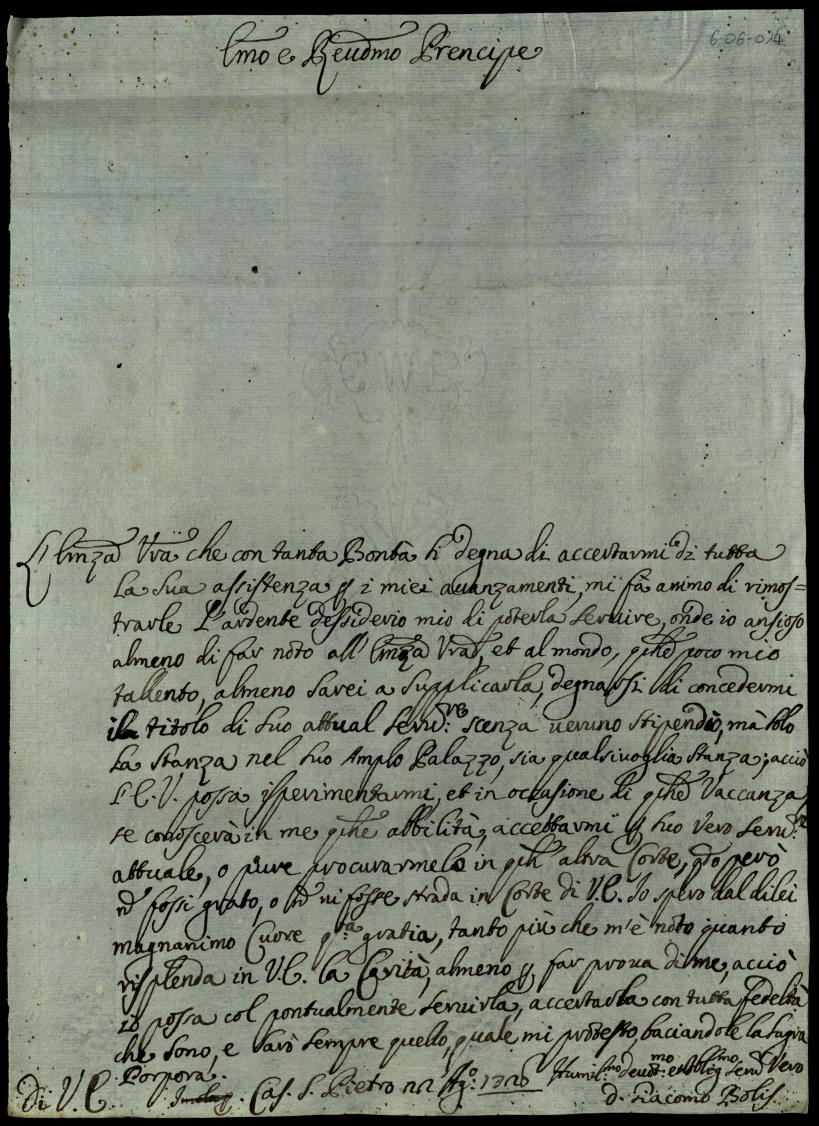 6-06-014
Emo e Reudmo Prencipe
L'Emza Vra che con tanta Bontà si degna di accertarmi di tutta
la sua assistenza p i miei auanzamenti, mi fà animo di rimos=
trarle l'ardente dessiderio mio di poterla seruire, onde io ansioso
almeno di far noto all'Emza Vra, et al mondo, qche poco mio
tallento, almeno sarei a supplicarla, degnarsi di concedermi
il titolo di suo attual seru.re scenza ueruno stipendio, mà solo
la stanza nel suo Amplo Palazzo, sia qualsiuoglia stanza; acciò
l'E. V. possa isperimentarmi, et in occasione di qche Vaccanza,
se conoscerà in me qche abbilità, accettarmi p suo vero seru.re
attuale, o pure procurarmelo in qche altra Corte, qdo però
nō fossi grato, o nō ui fosse strada in Corte di V.E. Io spero dal di lei
magnanimo Cuore q.ta gratia, tanto più che m'è noto quanto
risplenda in V.E. la Carità, almeno p far proua di me, acciò
io possa col pontualmente seruirla, accertarla con tutta fedeltà
che sono, e sarò sempre quello, quale mi protesto, baciandole la sagra
Porpora.
Di V.E. Cas. S. Pietro Ag.o 1720 Humil.mo deuot.mo et oblig.mo seru. vero
d. Giacomo Bolis.